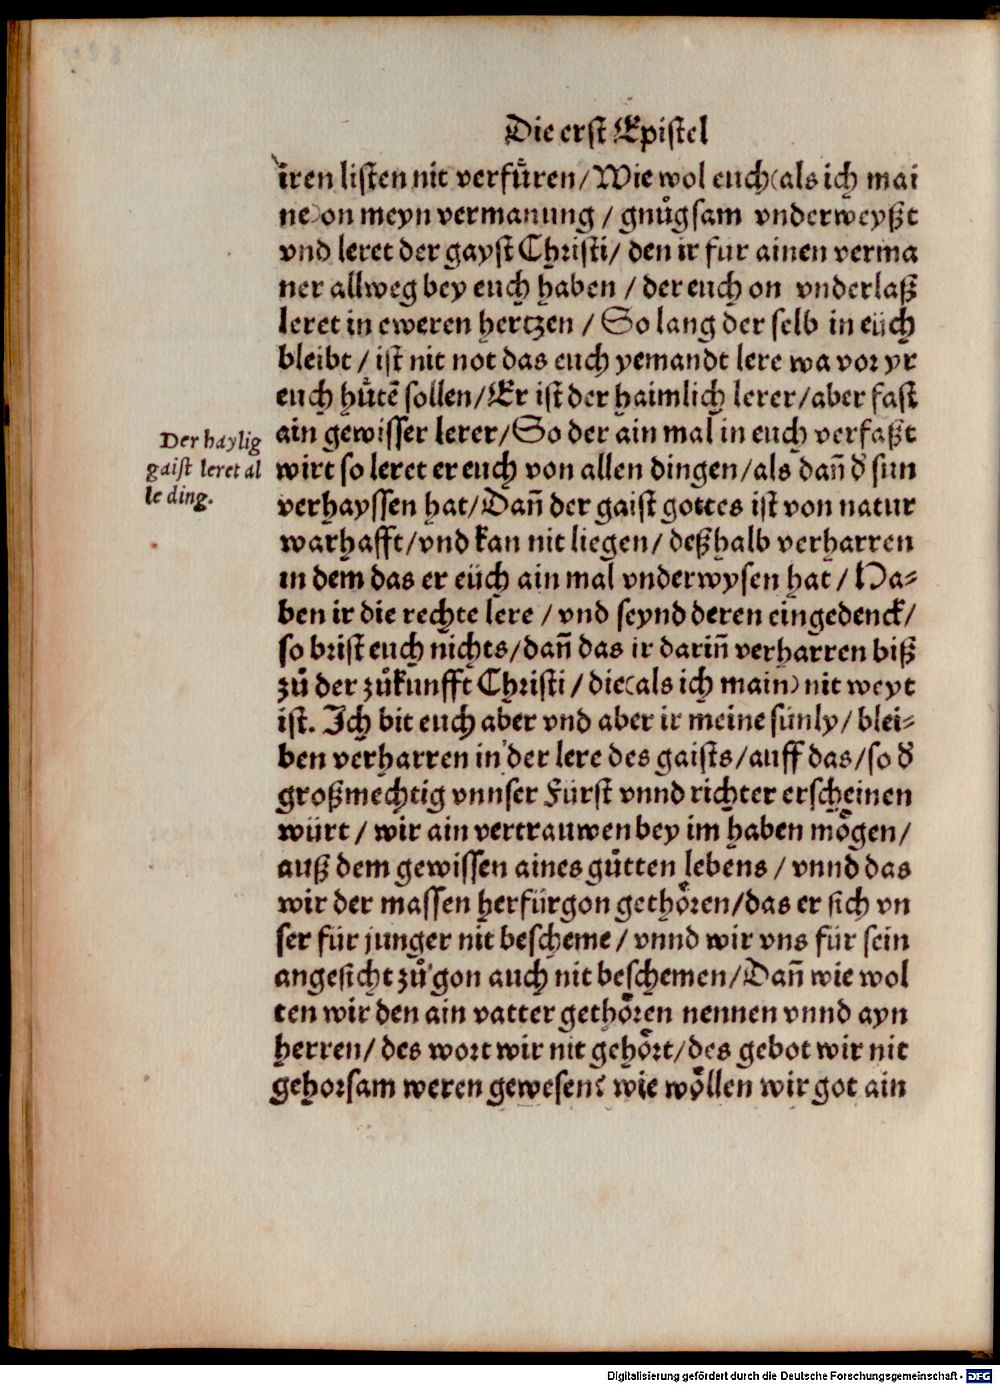 Die erst Epistel
iren listen nit verfuͤren/ Wie wol euch (als ich mai
ne) on meyn vermanung / gnuͦgsam vnderweyßt
vnd leret der gayst Christi/ den ir fur ainen verma
ner allweg bey euch haben / der euch on vnderlaß
leret in eweren hertzen / So lang der selb in eüch
bleibt / ist nit not das euch yemandt lere wa vor yr
euch huͤtē sollen/ Er ist der haimlich lerer/ aber fast
ain gewisser lerer/ So der ain mal in euch verfaßt
wirt so leret er euch von allen dingen/ als dañ d' sun
verhayssen hat/ Dañ der gaist gottes ist von natur
warhafft/ vnd kan nit liegen/ deßhalb verharren
in dem das er eüch ain mal vnderwysen hat / Ha⸗
ben ir die rechte lere / vnd seynd deren eingedenck/
so brist euch nichts/ dañ das ir dariñ verharren biß
zuͦ der zuͦkunfft Christi / die (als ich main) nit weyt
ist. Ich bit euch aber vnd aber ir meine sünly/ blei⸗
ben verharren in der lere des gaists/ auff das/ so d'
großmechtig vnnser Fürst vnnd richter erscheinen
würt / wir ain vertrauwen bey im haben moͤgen/
auß dem gewissen aines guͤtten lebens / vnnd das
wir der massen herfürgon gethoͤren/ das er sich vn
ser für junger nit bescheme/ vnnd wir vns für sein
angesicht zuͦ gon auch nit beschemen/ Dañ wie wol
ten wir den ain vatter gethoͤren nennen vnnd ayn
herren/ des wort wir nit gehoͤrt/ des gebot wir nit
gehorsam weren gewesen? wie woͤllen wir got ain
Der haylig
gaist leret al
le ding.
Digitalisierung gefördert durch die Deutsche Forschungsgemeinschaft - DFG